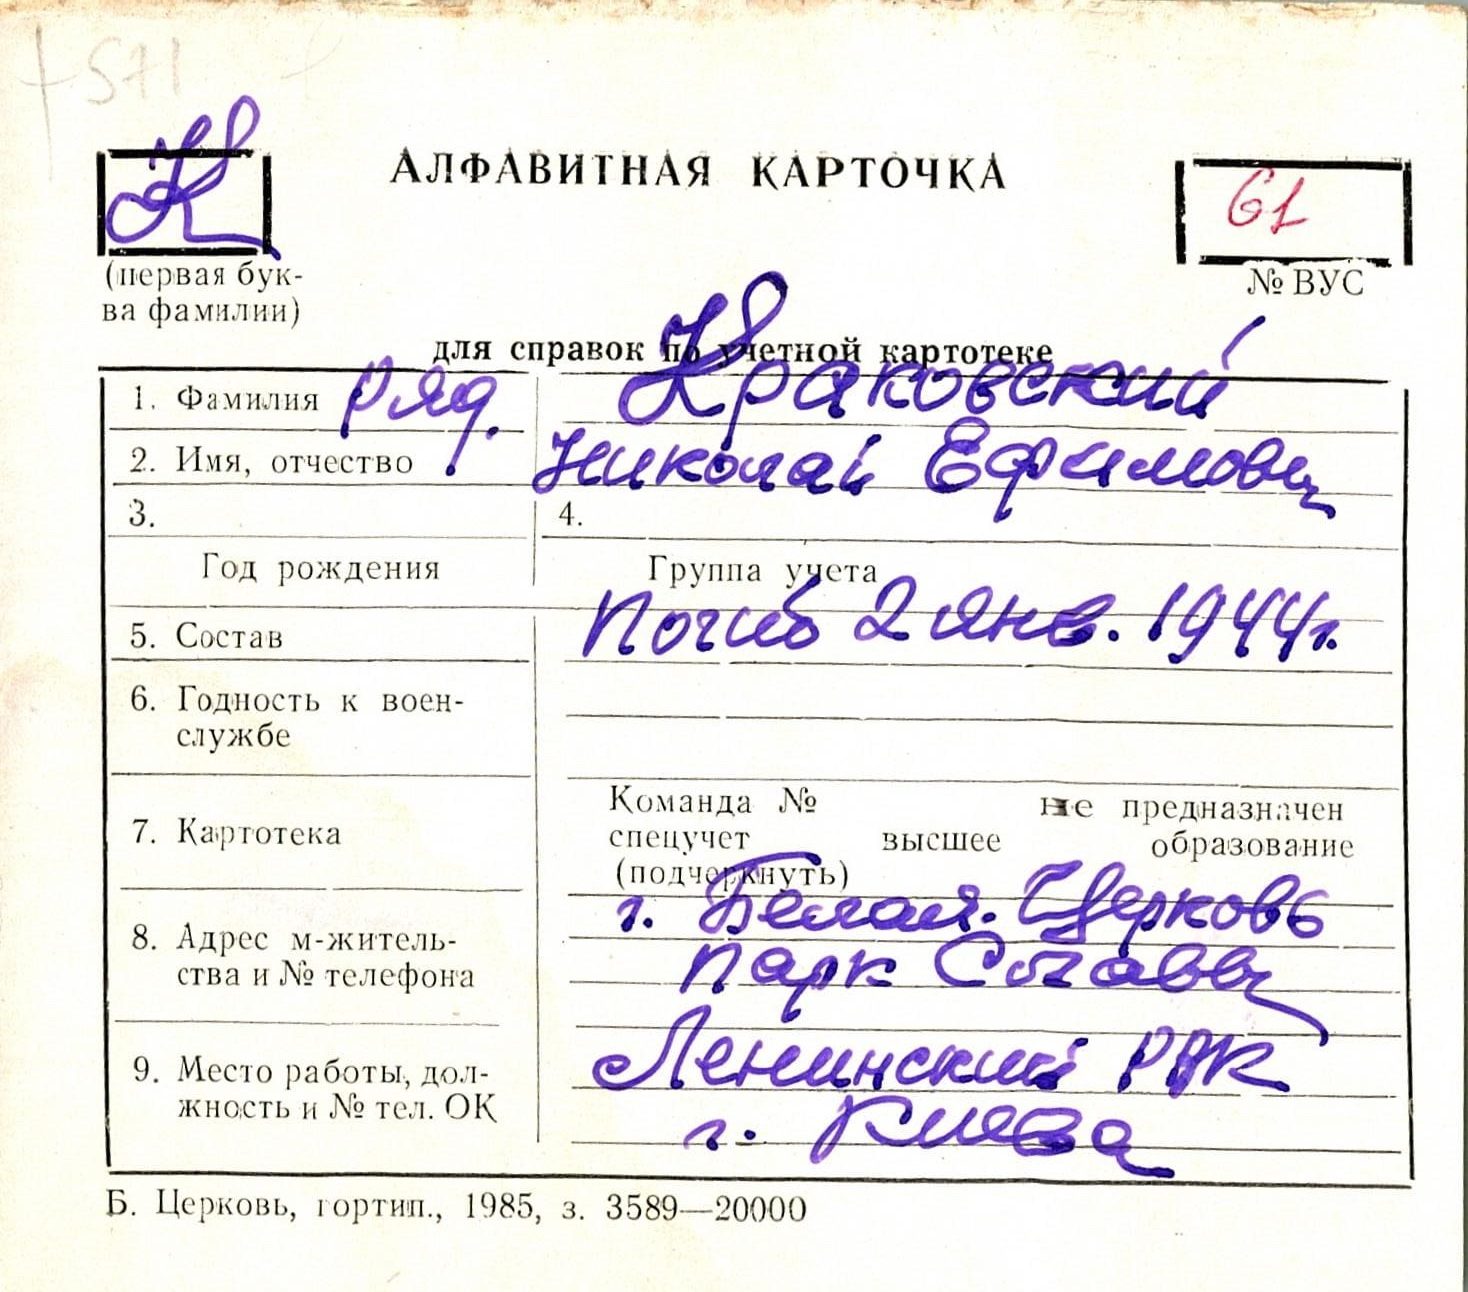 +571
К
АЛФАВИТНАЯ КАРТОЧКА
61
(первая бук-
ва фамилии)
№ ВУС
для справок по учетной картотеке
1. Фамилия ряд. Краковский
2. Имя, отчество Николай Ефимович
3. 4.
Год рождения Группа учета
5. Состав Погиб 2 янв. 1944г.
6. Годность к воен-
службе
7. Картотека
Команда № не предназначен
спецучет высшее образование
(подчеркнуть)
8. Адрес м-житель-
ства и № телефона
г. Белая Церковь
парк Славы
9. Место работы, дол-
жность и № тел. ОК
Ленинский РВК
г. Киева
Б. Церковь, гортип., 1985, з. 3589—20000